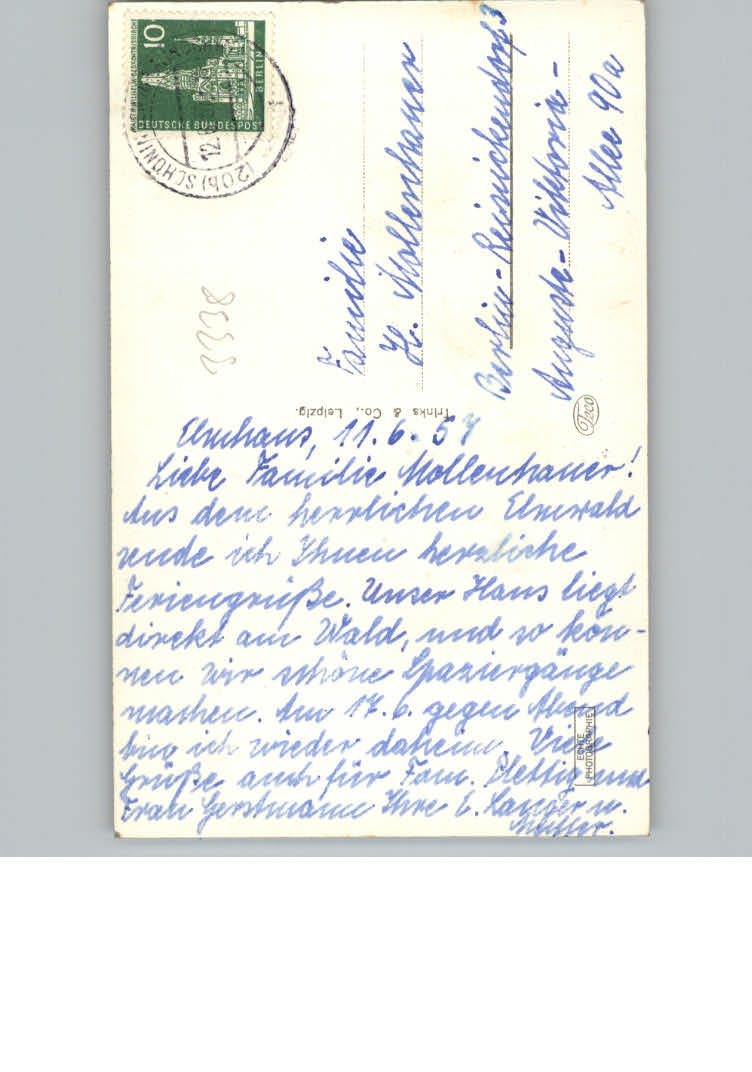 10
DEUTSCHE BUNDESPOST
BERLIN
(20b) SCHÖNIN
12.6
3338
Familie
H. Mollenhauer
Berlin-Reinickendorf 3
Auguste-Viktoria-
Allee 90a
Trinks & Co., Leipzig.
Trco
Elmhaus, 11.6.57
Liebe Familie Mollenhauer!
Aus dem herrlichen Elmwald
sende ich Ihnen herzliche
Feriengrüße. Unser Haus liegt
direkt am Wald, und so kön-
nen wir schöne Spaziergänge
machen. Am 17.6. gegen Abend
bin ich wieder daheim. Viele
Grüße auch für Fam. Hettig und
Frau Gerstmann Ihre E. Langer u.
Mutter.
ECHTE
PHOTOGRAPHIE